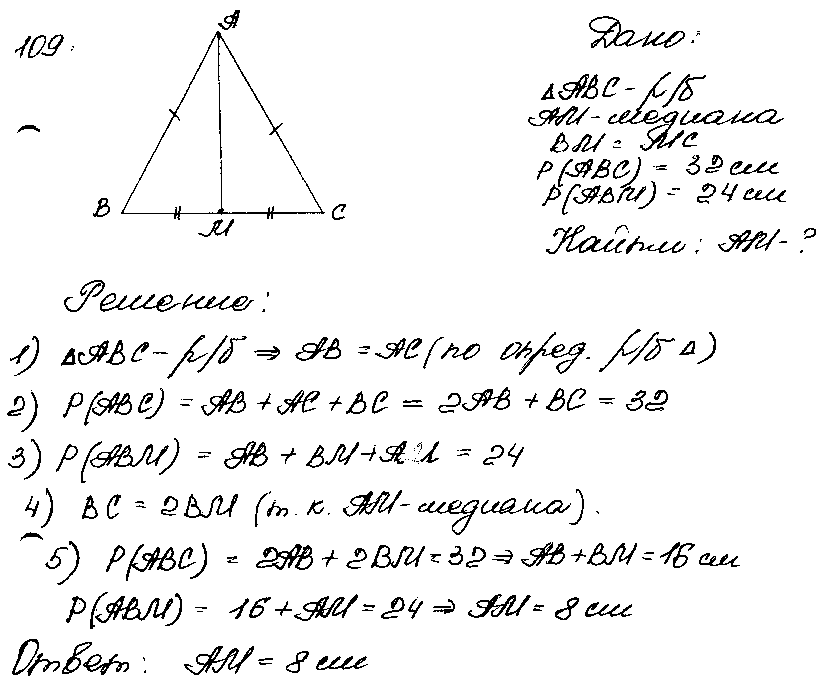 109.
A
B
M
C
Дано:
△ABC - р/б
AM - медиана
BM = MC
P(ABC) = 32 см
P(ABM) = 24 см
Найти: AM - ?
Решение:
1) △ABC - р/б ⇒ AB = AC (по опред. р/б △)
2) P(ABC) = AB + AC + BC = 2AB + BC = 32
3) P(ABM) = AB + BM + AM = 24
4) BC = 2BM (т. к. AM - медиана).
5) P(ABC) = 2AB + 2BM = 32 ⇒ AB + BM = 16 см
P(ABM) = 16 + AM = 24 ⇒ AM = 8 см
Ответ: AM = 8 см